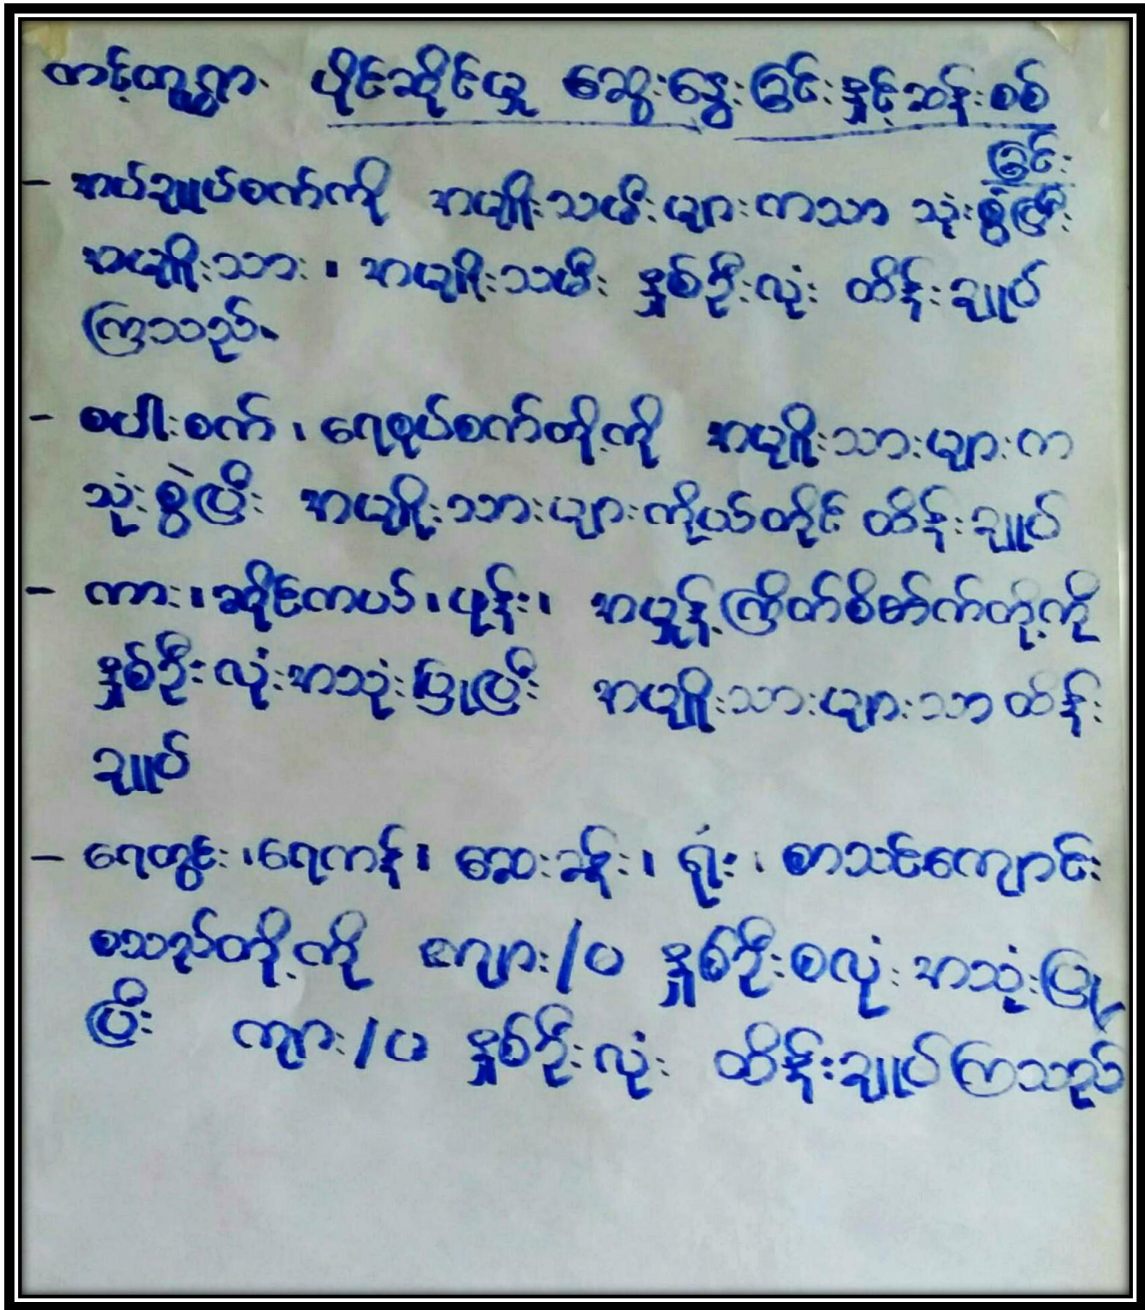 တင့်တူရွာ ပိုင်ဆိုင်မှု ဆွေးနွေးခြင်းနှင့်ဆန်းစစ်
ခြင်း
- အပ်ချုပ်စက်ကို အမျိုးသမီးများကသာ သုံးစွဲပြီး
အမျိုးသား၊ အမျိုးသမီး နှစ်ဦးလုံး ထိန်းချုပ်
ကြသည်။
- စပါးစက်၊ ရေစုပ်စက်တို့ကို အမျိုးသားများက
သုံးစွဲပြီး အမျိုးသားများကိုယ်တိုင် ထိန်းချုပ်
- ကား၊ ဆိုင်ကယ်၊ ဖုန်း၊ အမှုန့်ကြိတ်စက်တို့ကို
နှစ်ဦးလုံးအသုံးပြုပြီး အမျိုးသားများသာထိန်း
ချုပ်
- ရေတွင်း၊ ရေကန်၊ ဆေးခန်း၊ ရုံး၊ စာသင်ကျောင်း
စသည်တို့ကို ကျား/မ နှစ်ဦးစလုံးအသုံးပြု
ပြီး ကျား/မ နှစ်ဦးလုံး ထိန်းချုပ်ကြသည်